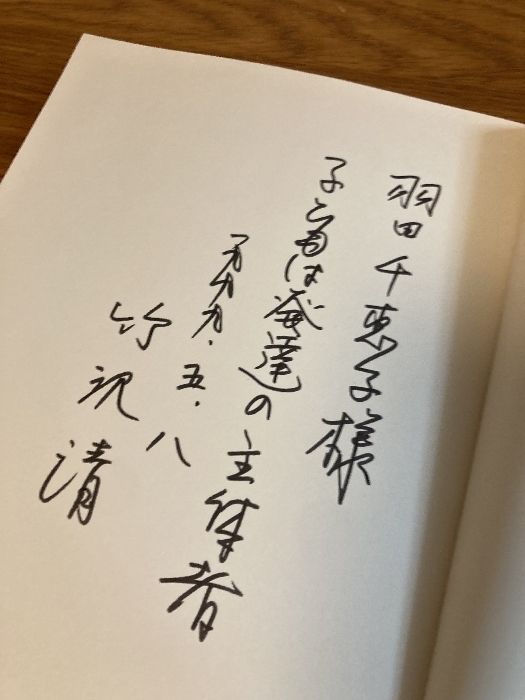 羽田千恵子様
子どもは発達の主体者
五・八
竹沢清